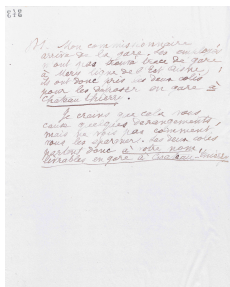 878
M. Mon commissionnaire
arrive de la gare. Les employés
n'ont pas trouvé trace de gare
à Mery ligne de l'Est
Ils ont donc pris les deux colis
pour les déposer en gare à
Château Thierry.
Je crains que cela vous
cause quelques dérangements,
mais ne vois pas comment
vous les épargner. Les deux colis
partent donc à votre nom,
livrables en gare à Château-Thierry